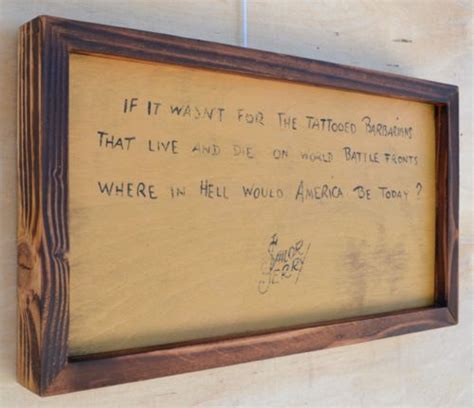 IF IT WASN'T FOR THE TATTOOED BARBARIANS
THAT LIVE AND DIE ON WORLD BATTLE FRONTS
WHERE IN HELL WOULD AMERICA BE TODAY?
SAILOR
JERRY